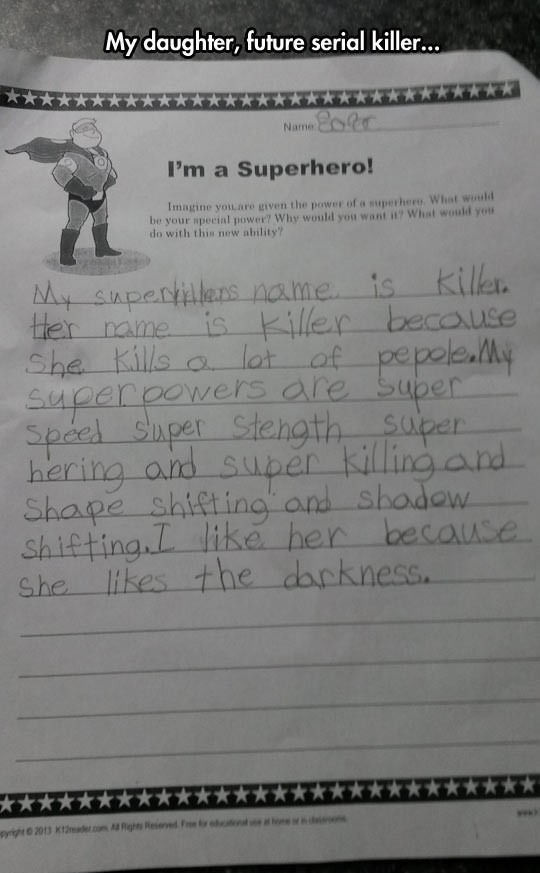 My daughter, future serial killer...
Name:
I'm a Superhero!
Imagine you are given the power of a superhero. What would
be your special power? Why would you want it? What would you
do with this new ability?
My superkillers name is Killer.
Her name is killer because
She Kills a lot of pepole.My
superpowers are super
speed super stength super
hering and super killing and
Shape shifting and shadow
shifting.I like her because
she likes the darkness.
pyright © 2013 K12reader.com. All Rights Reserved. Free for educational use at home or in classrooms.